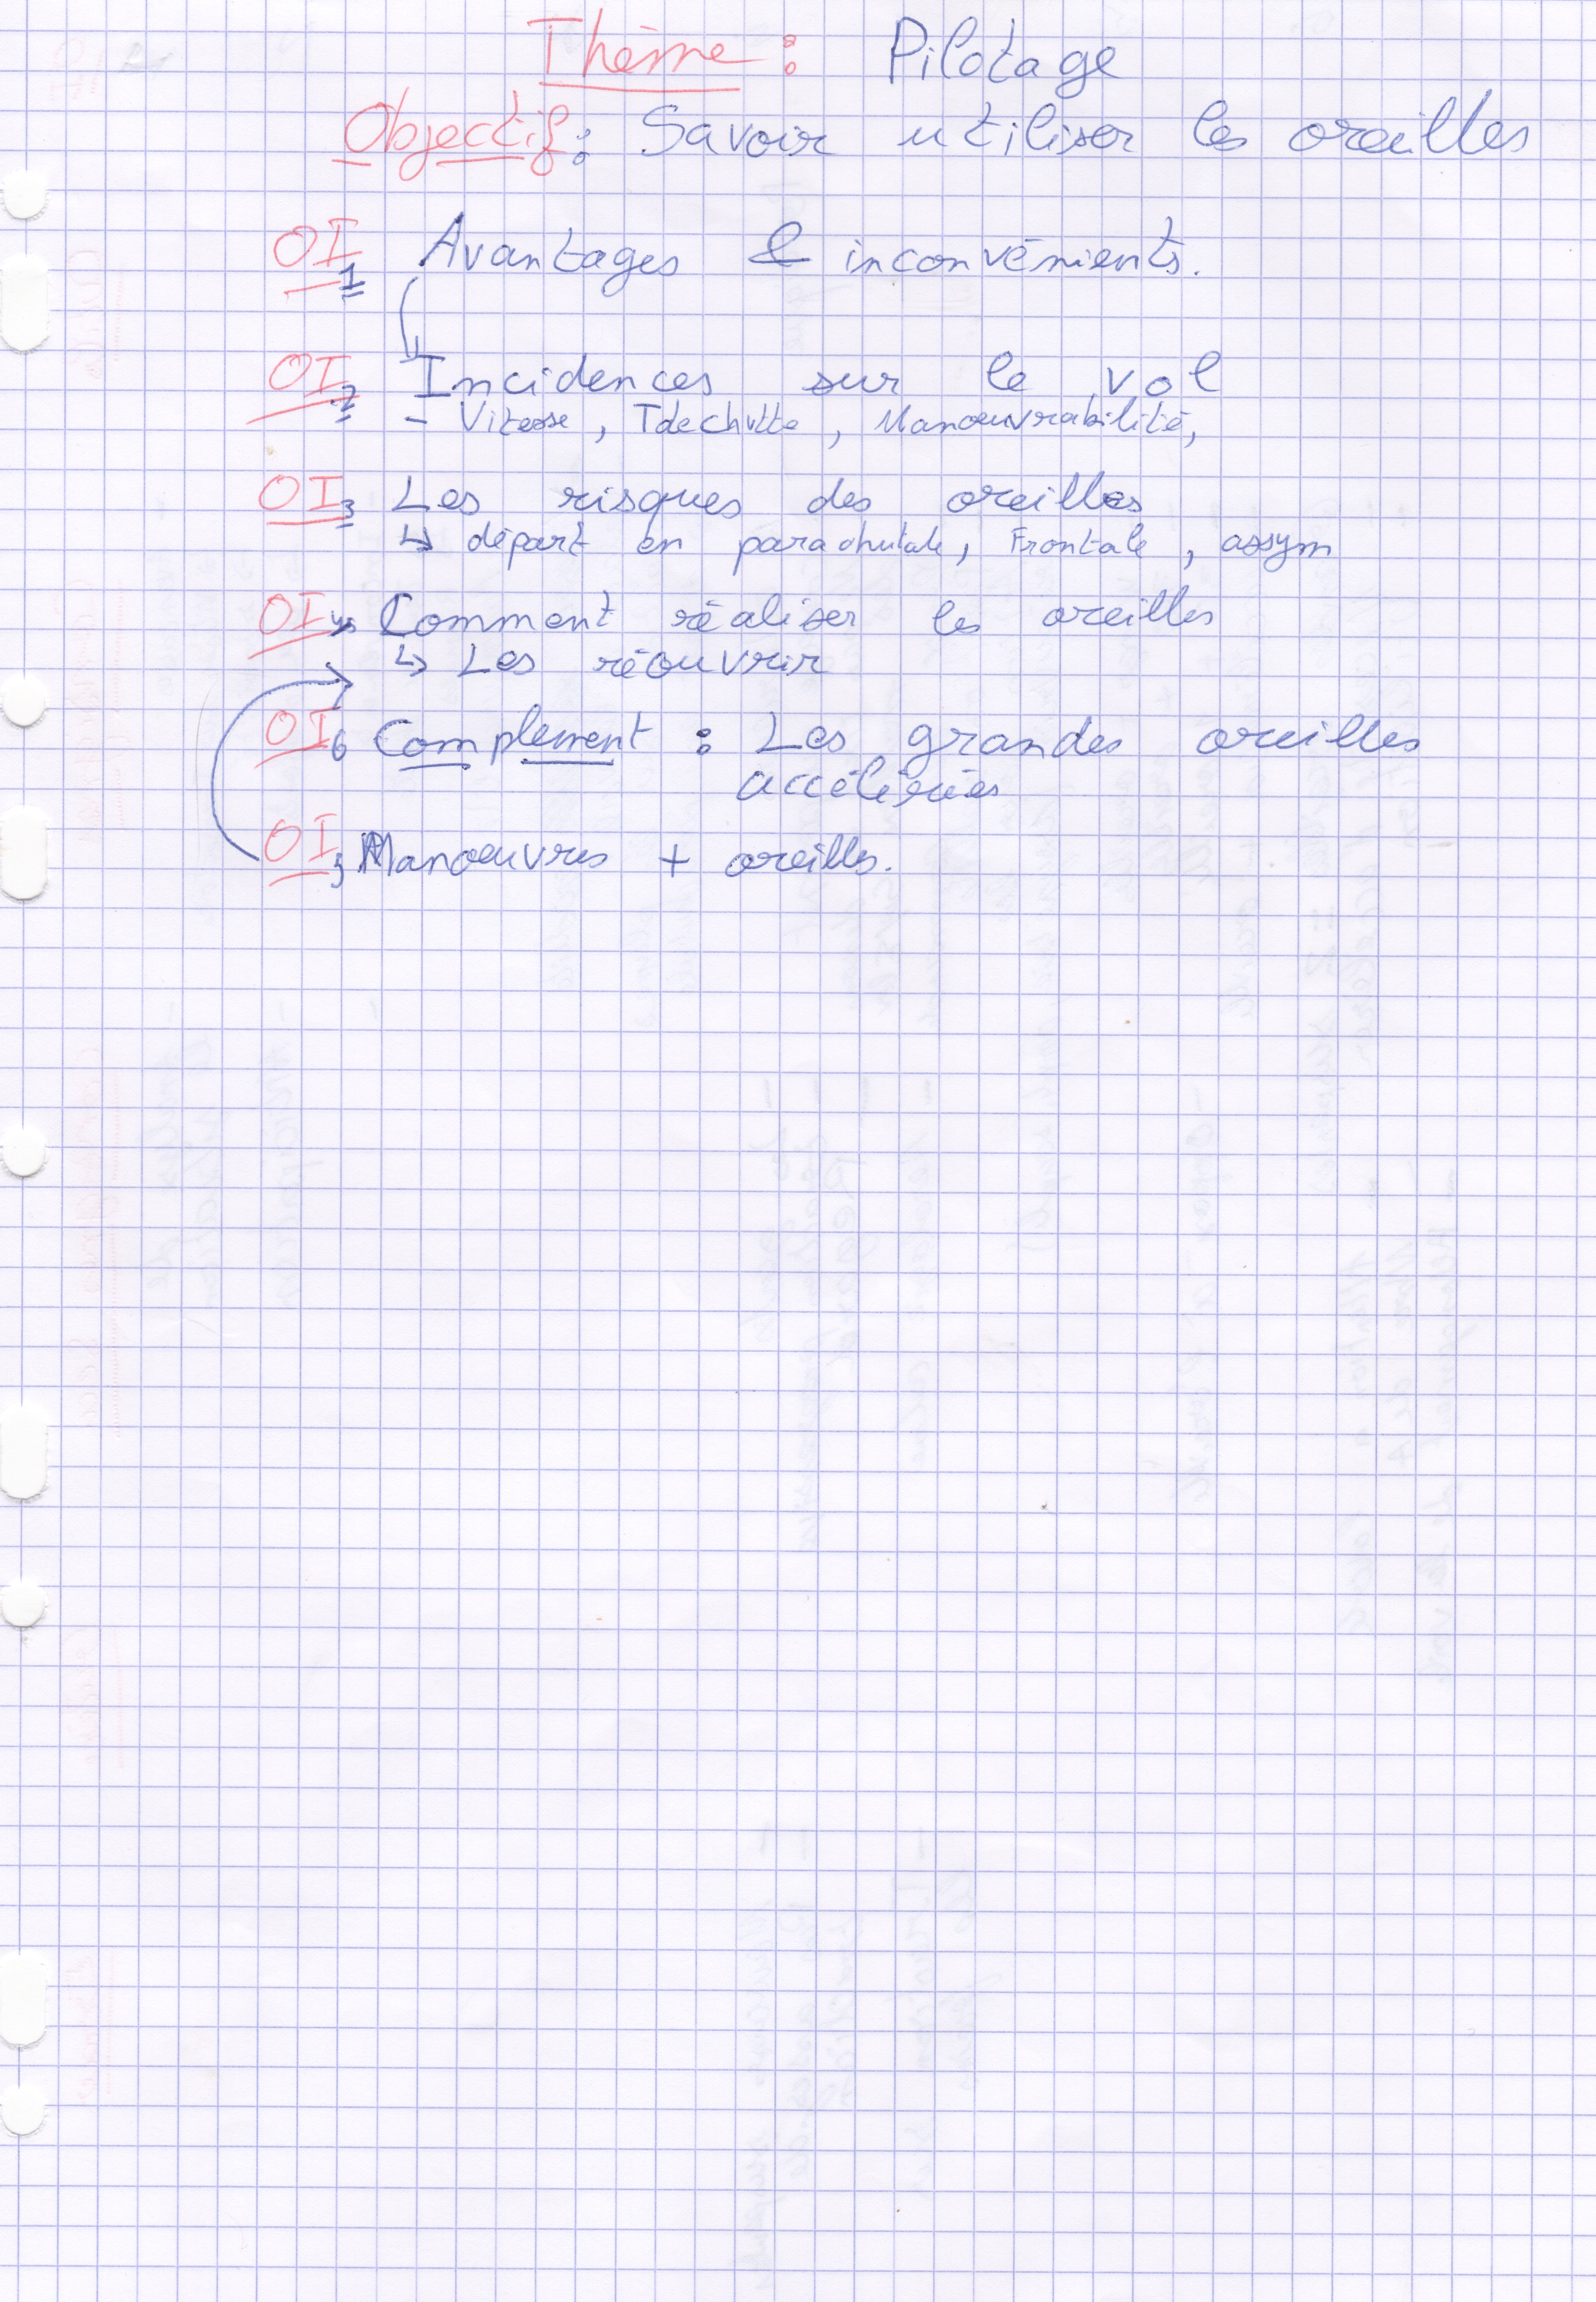 Thème : Pilotage
Objectif : Savoir utiliser les oreilles
OI1 Avantages & inconvénients.
OI2 Incidences sur le vol
- Vitesse, Tdechutte, Manoeuvrabilité,
OI3 Les risques des oreilles
↳ départ en parachutale, Frontale, assym
OI4 Comment réaliser les oreilles
↳ Les réouvrir
OI6 Complement : Les grandes oreilles
accélérées
OI5 Manoeuvres + oreilles.